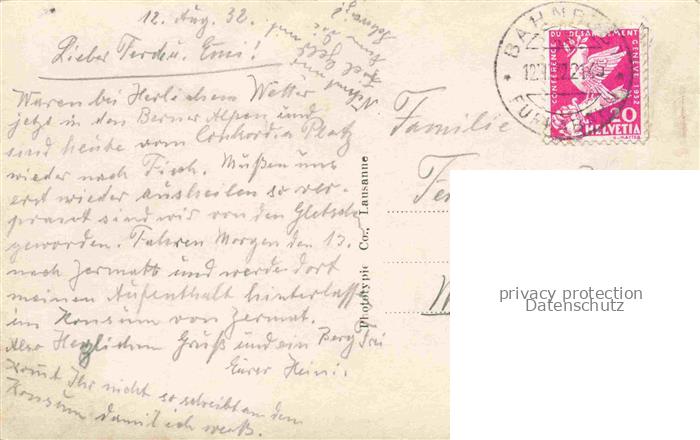 12. Aug. 32.
Lieber Ferdi u. Emi!
Waren bei Herlichem Wetter
jetz in den Berner Alpen und
sind heute vom Conkordia Platz
wieder nach Fisch. Müßen uns
erst wieder ausheilen so ver-
brannt sind wir von den Gletsch
geworden. Fahren Morgen den 13.
nach Zermatt und werde dort
meinen Aufenthalt hinterlassen
im Konsum von Zermat.
Also Herzlichen Gruß und ein Berg Frei
Eurer Heini.
Komt Ihr nicht so schreibt an den
Konsum damit ich weiß.
Familie
Phototypie Co., Lausanne
BAHNPOST
CONFERENCE DU DESARMEMENT GENEVE 1932
20
HELVETIA
privacy protection
Datenschutz